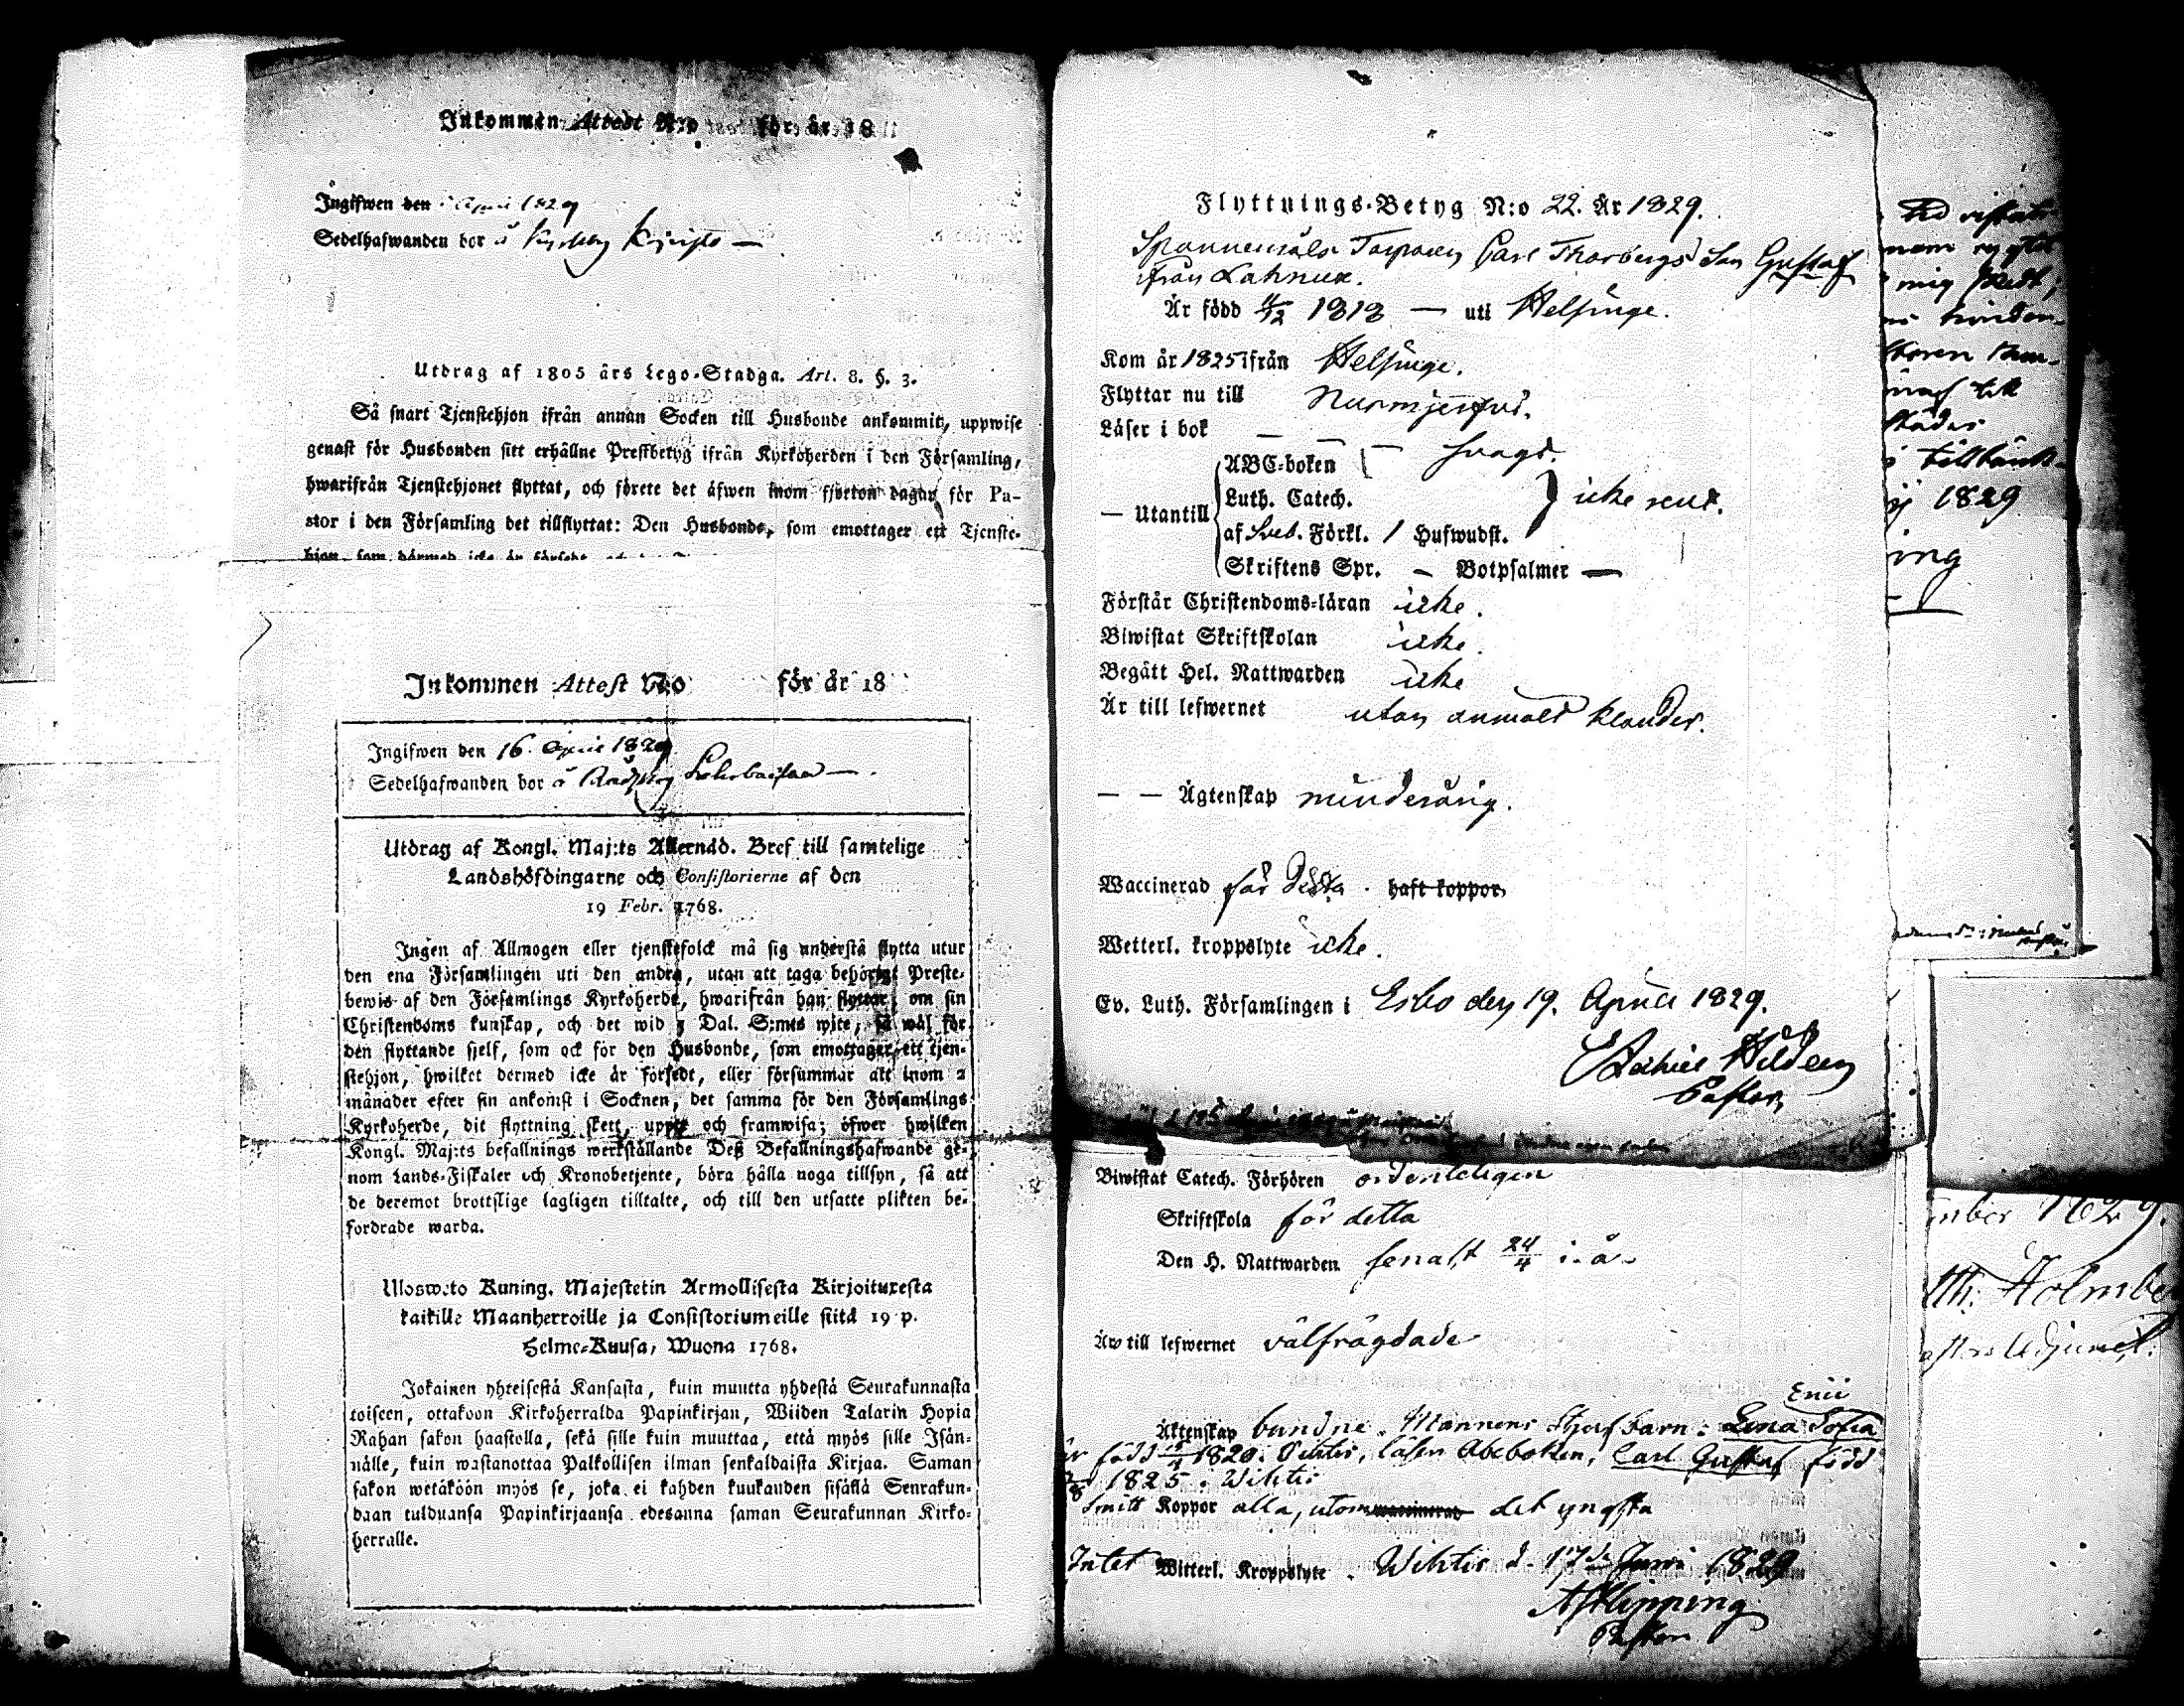 Inkommen Attest N:o för år 18
Ingifwen den April 1829
Sedelhafwanden bor å
Utdrag af 1805 års Lego-Stadga. Art. 8. §. 3.
Så snart Tjenstehjon ifrån annan Socken till Husbonde ankommit, uppwise
genast för Husbonden sitt erhållne Prestbetyg ifrån Kyrkoherden i den Församling,
hwarifrån Tjenstehjonet flyttat, och förete det äfwen inom fjorton dagar för Pa-
stor i den Församling det tillflyttat: Den Husbonde, som emottager ett Tjenste-
hjon, som dermed icke är försedt,
Inkommen Attest N:o för år 18
Ingifwen den 16. April 1829
Sedelhafwanden bor å
Utdrag af Kongl. Maj:ts Allernåd. Bref till samtelige
Landshöfdingarne och Consistorierne af den
19 Febr. 1768.
Ingen af Allmogen eller tjenstefolck må sig understå flytta utur
den ena Församlingen uti den andra, utan att taga behörigt Preste-
bewis af den Församlings Kyrkoherde, hwarifrån han flyttar, om sin
Christendoms kunskap, och det wid 5 Dal. S:mts wite, så wäl för
den flyttande sjelf, som ock för den Husbonde, som emottager ett tjen-
stehjon, hwilket dermed icke är försedt, eller försummar att inom 2
månader efter sin ankomst i Socknen, det samma för den Församlings
Kyrkoherde, dit flyttning skett, uppte och framwisa; öfwer hwilken
Kongl. Maj:ts befallnings werkställande Deß Befallningshafwande ge-
nom Lands-Fiskaler och Kronobetjente, böra hålla noga tillsyn, så att
de deremot brottslige lagligen tilltalte, och till den utsatte plikten be-
fordrade warda.
Ulosweto Kuning. Majestetin Armollisesta Kirjoituxesta
kaikille Maanherroille ja Consistoriumeille siitä 19 p.
Helme-Kuusa, Wuona 1768.
Jokainen yhteisestä Kansasta, kuin muutta yhdestä Seurakunnasta
toiseen, ottakoon Kirkoherralda Papinkirjan, Wiiden Talarin Hopia
Rahan sakon haastolla, sekä sille kuin muuttaa, että myös sille Isän-
nälle, kuin wastanottaa Palkollisen ilman senkaldaista Kirjaa. Saman
sakon wetäköön myös se, joka ei kahden kuukauden sisällä Seurakun-
daan tulduansa Papinkirjaansa edesanna saman Seurakunnan Kirko-
herralle.
Flyttnings-Betyg N:o 22. År 1829.
Torparen Carl Thorbergs Son Gustaf
från Lahnus.
Är född 1818 — uti Helsinge.
Kom år 1825 ifrån Helsinge.
Flyttar nu till Nurmijerfvi.
Läser i bok — — — svagt.
— Utantill ABC-boken
Luth. Catech. icke rent.
af Sveb. Förkl. 1 Hufwudst.
Skriftens Spr. — Botpsalmer —
Förstår Christendoms-läran icke.
Biwistat Skriftskolan icke.
Begått Hel. Nattwarden icke
Är till lefwernet utan anmält klander.
— — Ägtenskap minderårig.
Waccinerad för detta. haft koppor,
Wetterl. kroppslyte icke.
Ev. Luth. Församlingen i Esbo den 19. April 1829.
Hildeen
Pastor,
Biwistat Catech. Förhören ordenteligen
Skriftskola för detta
Den H. Nattwarden senast 24/4 i. å.
Äro till lefwernet välfrägdade
Enii
Äktenskap bundne. Mannens Styfbarn: Lena Sofia
är född 1820 i Vihtis, läser Abcboken, Carl Gustaf född
1825 i Wihtis
Smitt Koppor alla, utom waccinerad det yngsta
Intet Witterl. Kroppslyte. Wihtis d. 17de Juni 1829
A F Klipping
Pastor
mig skedt;
till
1829
ing
mber 1829.
Th. Holmbe